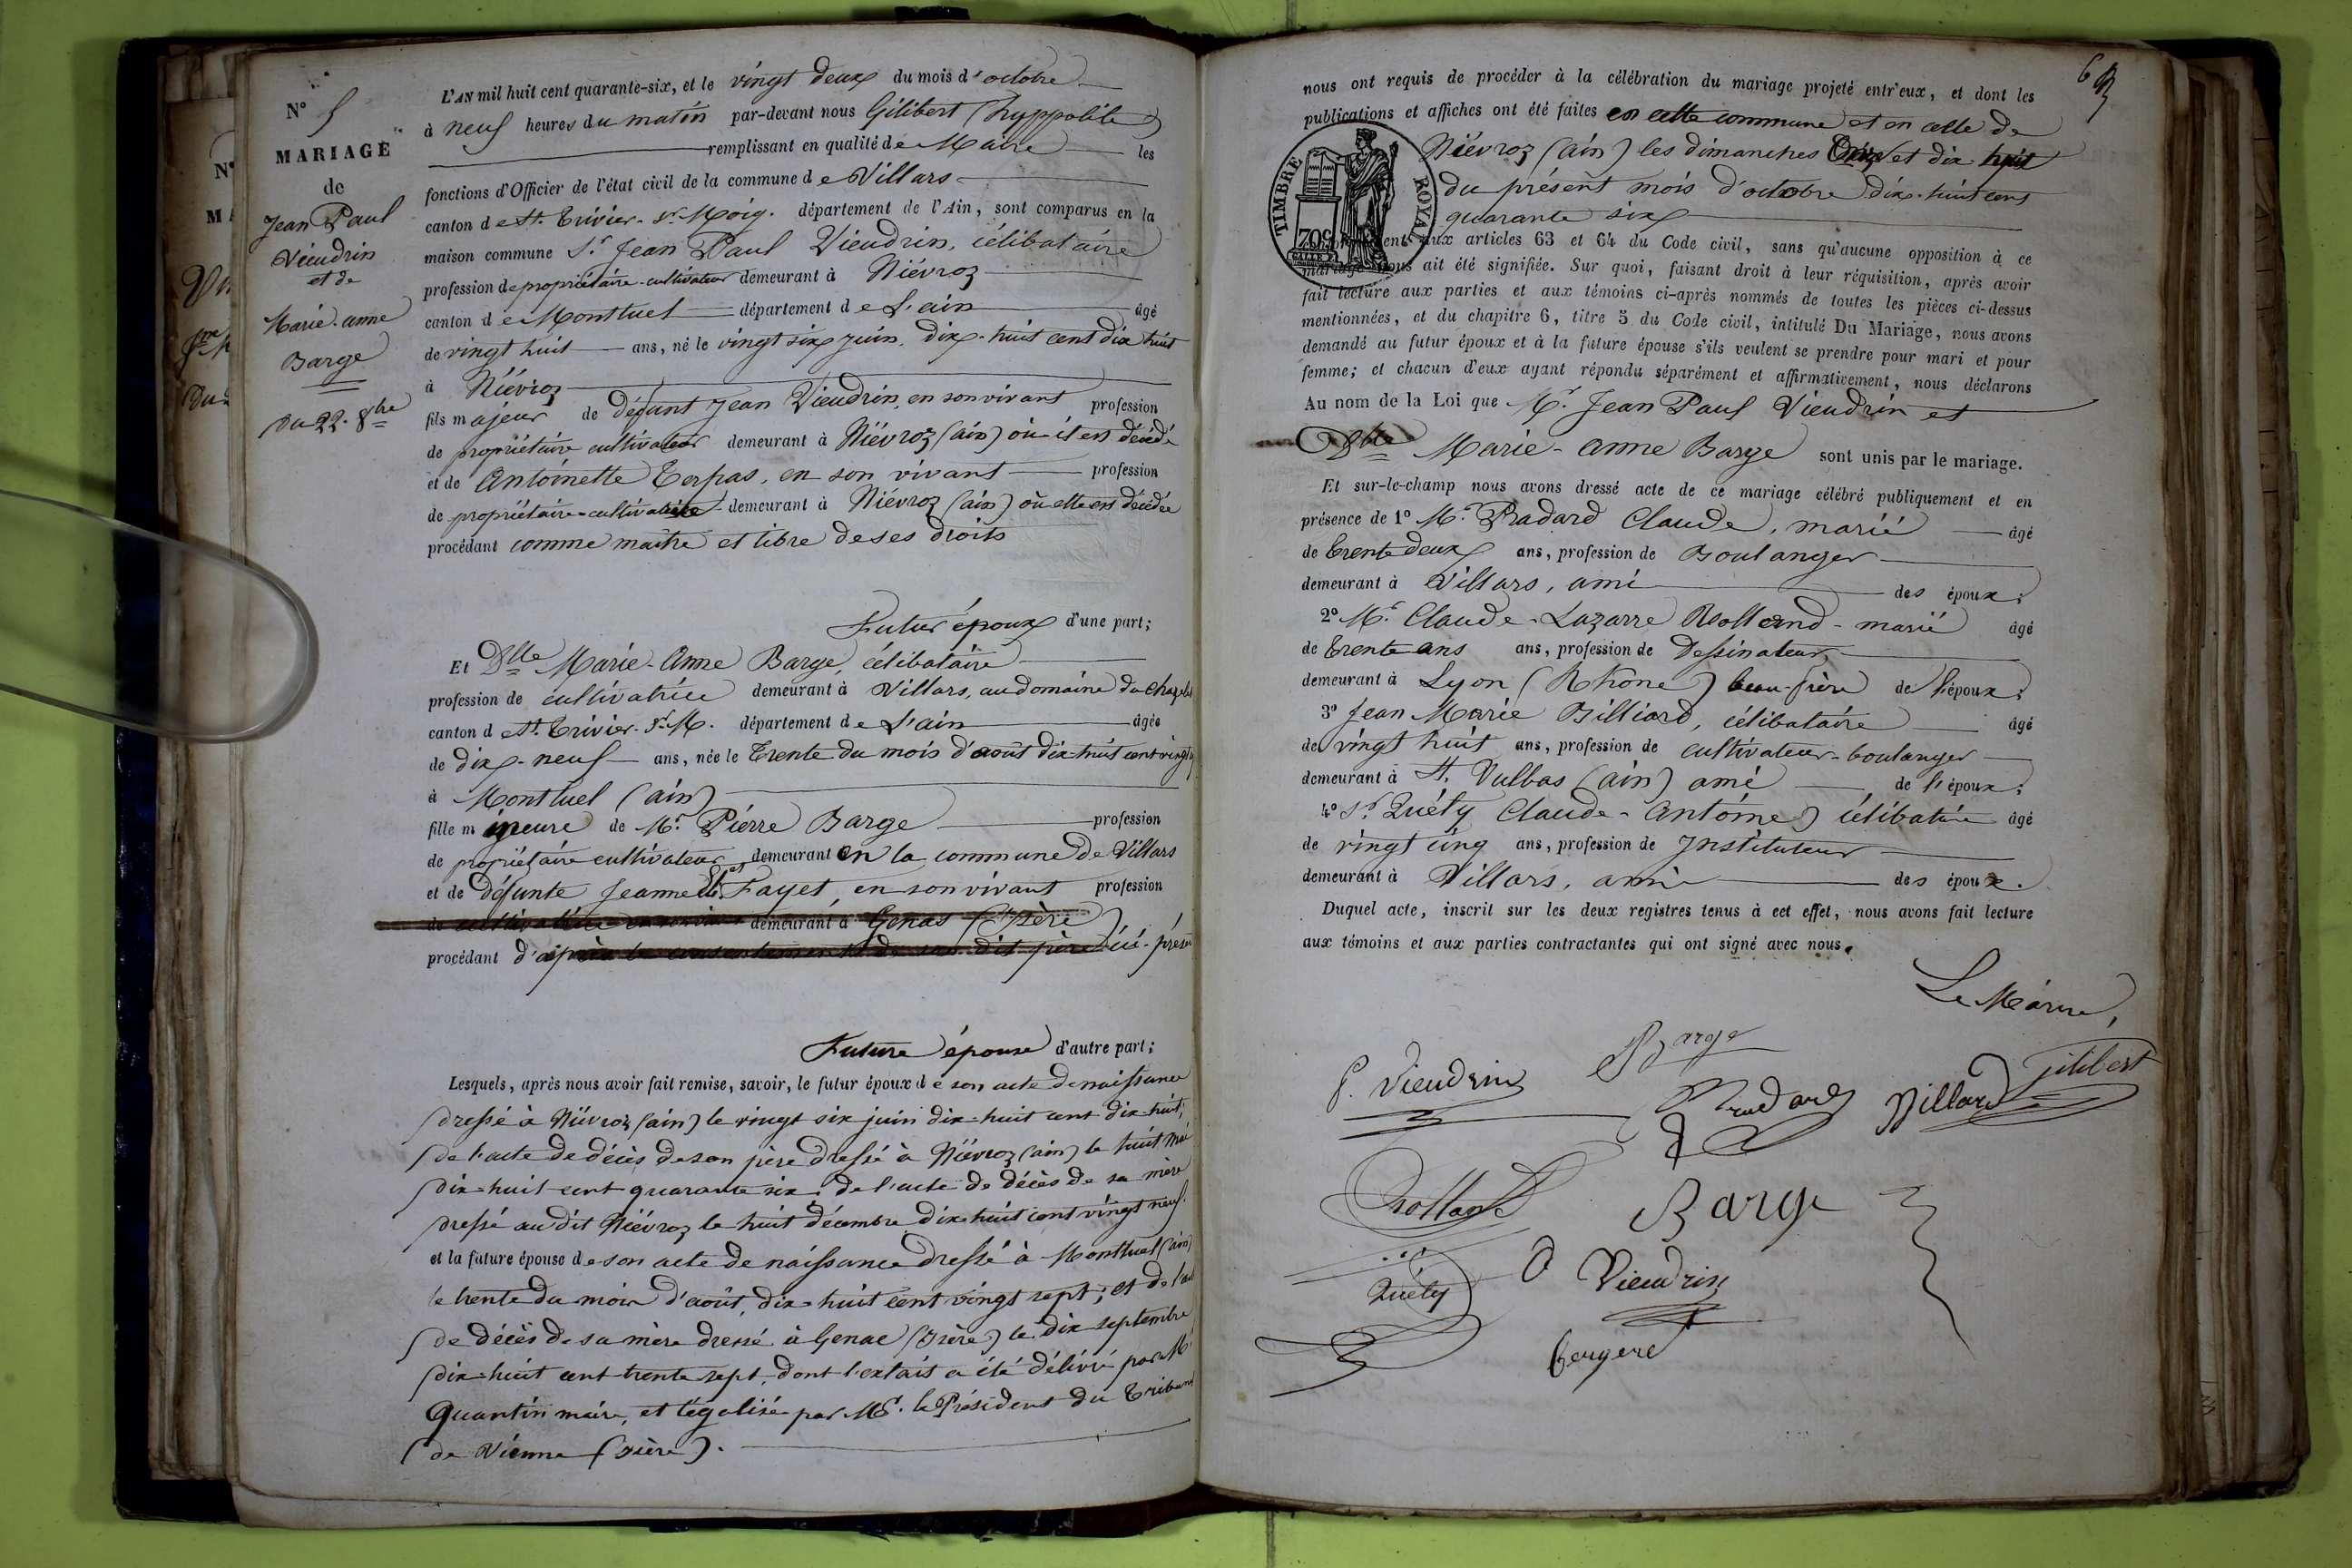 N° 5
MARIAGE
de
Jean Paul
Vieudrin
et de
Marie-anne
Barge
Du 22. 8bre
L'AN mil huit cent quarante-six, et le vingt deux du mois d'octobre
à neuf heures du matin par-devant nous Gilibert (hyppolite)
remplissant en qualité de Maire les
fonctions d'Officier de l'état civil de la commune de Villars
canton de St. Trivier-sr-Moig. département de l'Ain, sont comparus en la
maison commune Sr. Jean Paul Vieudrin, célibataire
profession de propriétaire-cultivateur demeurant à Niévroz
canton de Montluel département de L'ain âgé
de vingt huit ans, né le vingt six juin, dix-huit cent dix huit
à Niévroz
fils majeur de défunt Jean Vieudrin, en son vivant profession
de propriétaire cultivateur demeurant à Niévroz (ain) où il est décédé
et de Antoinette Terpas, en son vivant profession
de propriétaire-cultivatrice demeurant à Niévroz (ain) où elle est décédée
procédant comme maitre et libre de ses droits
Futur époux d'une part;
Et Dlle Marie-Anne Barge, célibataire
profession de cultivatrice demeurant à Villars, au domaine du
canton de St. Trivier-sr-M. département de L'ain âgée
de dix-neuf ans, née le trente du mois d'août dix-huit cent vingt
à Montluel (ain)
fille mineure de Mr. Pierre Barge profession
de propriétaire cultivateur demeurant en la commune de Villars
et de défunte Jeannette Fayet, en son vivant profession
de demeurant à Genas (Isère)
procédant d'après le consentement de son dit père ici-présent
Future épouse d'autre part;
Lesquels, après nous avoir fait remise, savoir, le futur époux de son acte de naissance
dressé à Niévroz (ain) le vingt six juin dix-huit cent dix-huit;
de l'acte de décès de son père dressé à Niévroz (ain) le huit mai
dix-huit cent quarante six; de l'acte de décès de sa mère
dressé au dit Niévroz le huit décembre dix-huit cent vingt neuf.
et la future épouse de son acte de naissance dressé à Montluel (ain)
le trente du mois d'août, dix-huit cent vingt sept; et de l'acte
de décès de sa mère dressé à Genac (Isère) le dix septembre
dix-huit cent trente sept, dont l'extrait a été délivré par Mr
Quantin maire, et légalisé par Mr. le Président du Tribunal
de Vienne (Isère).
nous ont requis de procéder à la célébration du mariage projeté entr'eux, et dont les
publications et affiches ont été faites en cette commune et en celle de
Niévroz (ain) les dimanches onze et dix huit
du présent mois d'octobre dix-huit cent
quarante six
TIMBRE ROYAL
70c
aux articles 63 et 64 du Code civil, sans qu'aucune opposition à ce
mariage nous ait été signifiée. Sur quoi, faisant droit à leur réquisition, après avoir
fait lecture aux parties et aux témoins ci-après nommés de toutes les pièces ci-dessus
mentionnées, et du chapitre 6, titre 5 du Code civil, intitulé Du Mariage, nous avons
demandé au futur époux et à la future épouse s'ils veulent se prendre pour mari et pour
femme; et chacun d'eux ayant répondu séparément et affirmativement, nous déclarons
Au nom de la Loi que Mr. Jean Paul Vieudrin et
Dlle Marie-anne Barge sont unis par le mariage.
Et sur-le-champ nous avons dressé acte de ce mariage célébré publiquement et en
présence de 1° Mr. Pradard Claude, marié âgé
de trente deux ans, profession de Boulanger
demeurant à Villars, ami des époux;
2° Mr. Claude-Lazarre Rolland-marié âgé
de trente ans ans, profession de Dessinateur
demeurant à Lyon (Rhône) beau-frère de l'époux;
3° Jean Marie Billiard, célibataire âgé
de vingt huit ans, profession de cultivateur-boulanger
demeurant à St. Vulbas (ain) ami de l'époux;
4° Sr. Quéty Claude-Antoine célibataire âgé
de vingt cinq ans, profession de Instituteur
demeurant à Villars, ami des époux.
Duquel acte, inscrit sur les deux registres tenus à cet effet, nous avons fait lecture
aux témoins et aux parties contractantes qui ont signé avec nous.
Le Maire,
Gilibert
P. Vieudrin
Barge
Pradard
Billard
Rolland
Barge
Quéty
Vieudrin
Bergere